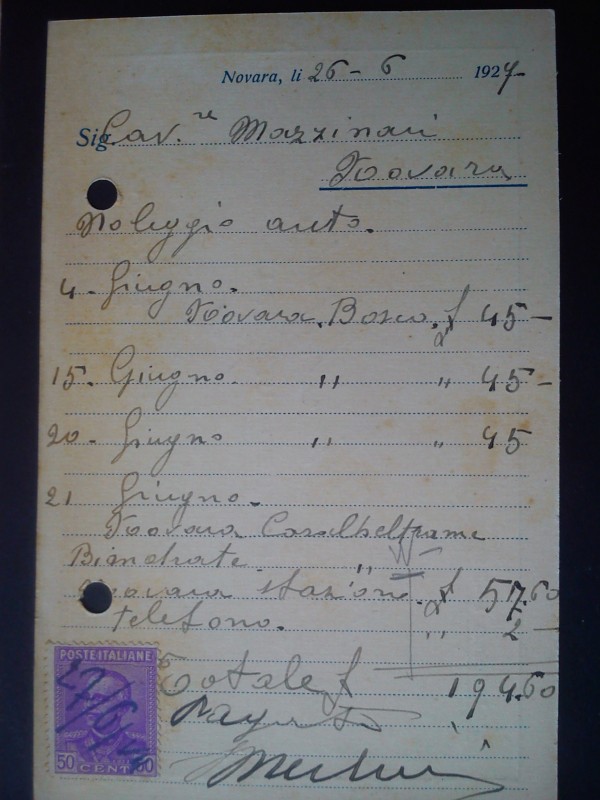 Novara, li 26 - 6 1927
Sig. Cav.re Mazzinari
Novara
Noleggio auto.
4 - Giugno.
Novara, Bosco, £ 45 -
15. Giugno. " " 45 -
20 - Giugno " " 45
21 Giugno.
Novara Casalbeltrame
Biandrate "
Novara stazione £ 57.60
Telefono. " 2 -
Totale £ 194.60
POSTE ITALIANE
50 CENT 50